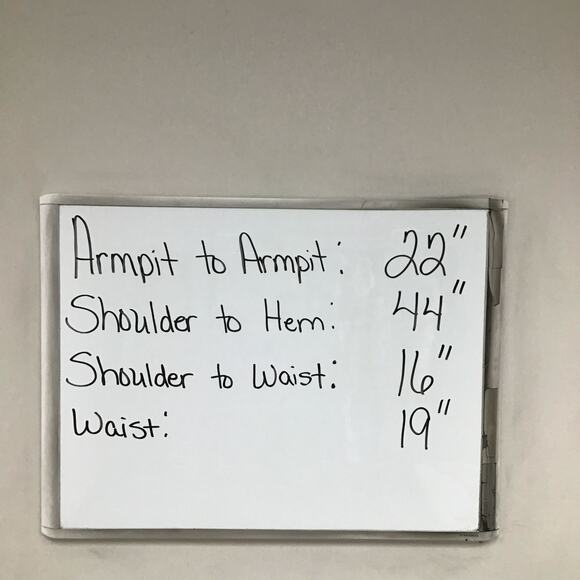 Armpit to Armpit: 22"
Shoulder to Hem: 44"
Shoulder to Waist: 16"
Waist: 19"